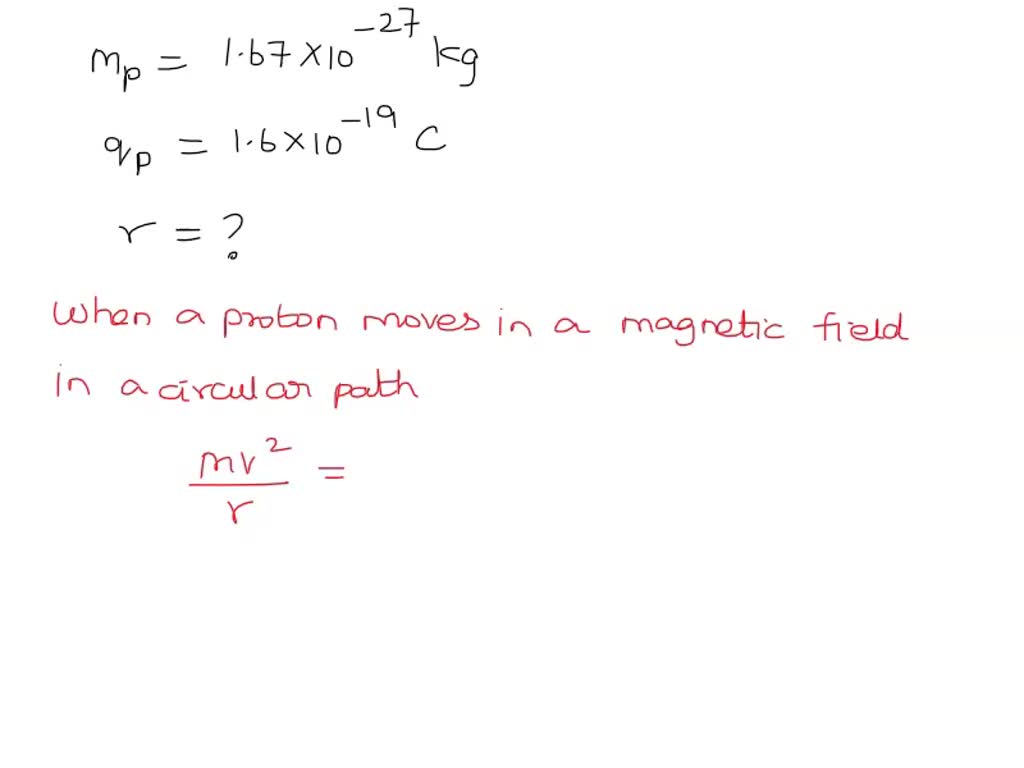 mₚ = 1.67×10⁻²⁷ kg
qₚ = 1.6×10⁻¹⁹ C
r = ?
When a proton moves in a magnetic field
in a circular path
mv²/r =